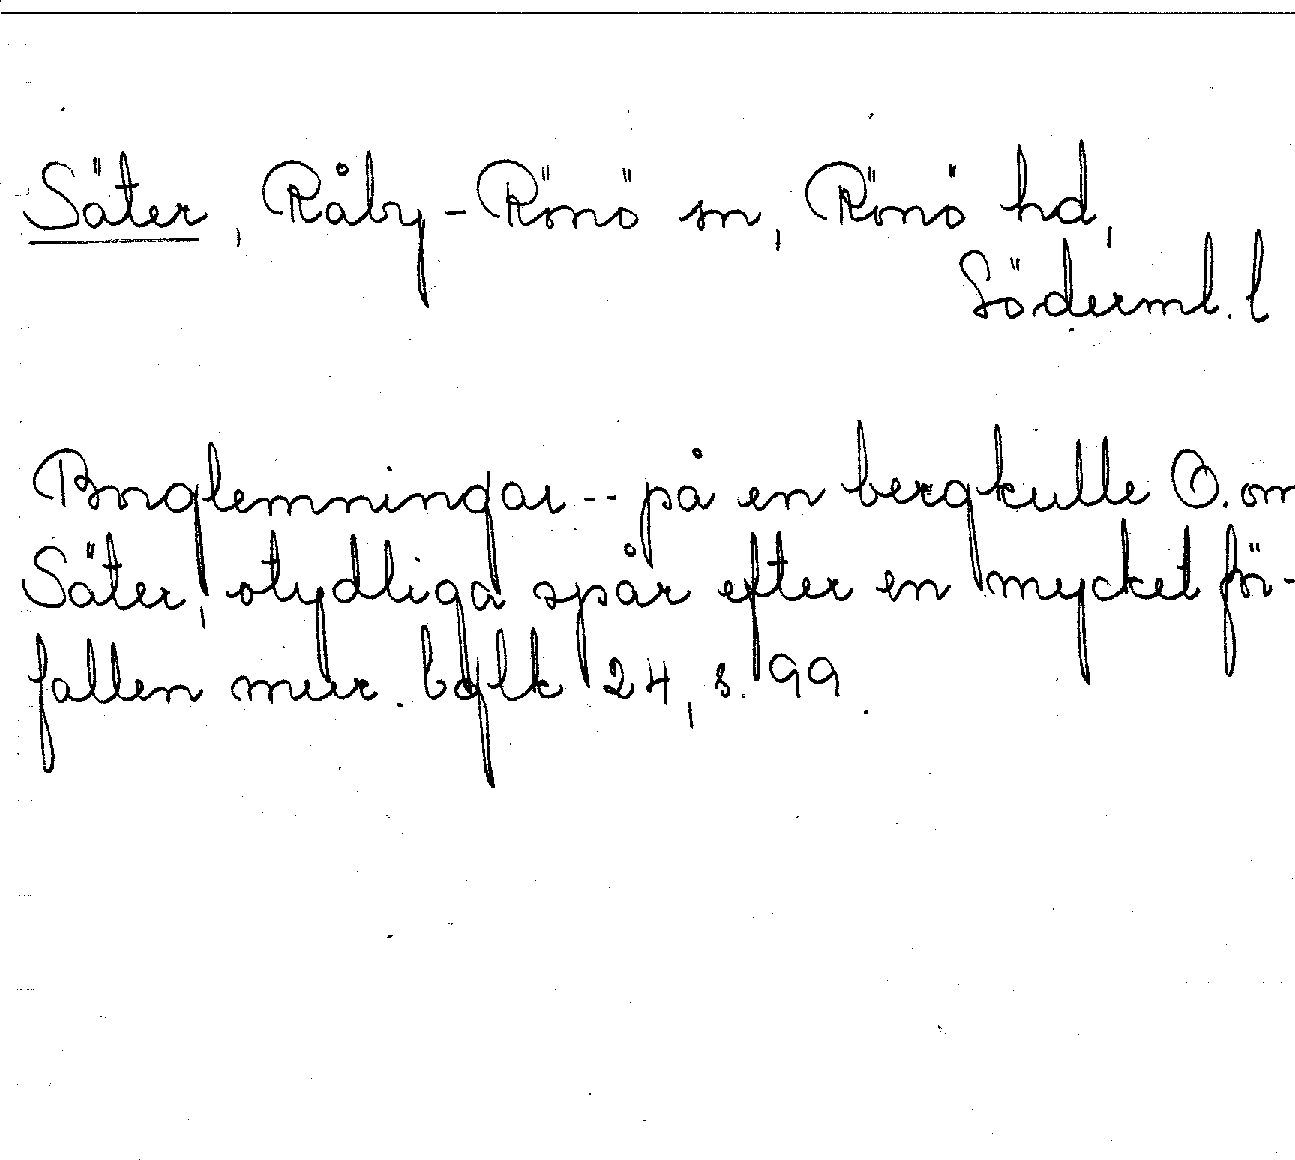 Säter, Råby-Rönö sn, Rönö hd,
Söderml. l
Borglemningar -- på en bergkulle Ö. om
Säter, otydliga spår efter en mycket för-
fallen mur. bglk 24, s. 99.